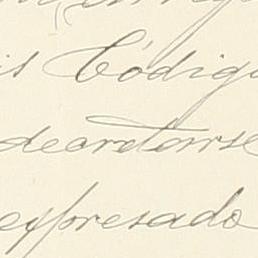 is Código
decretarse
expresado